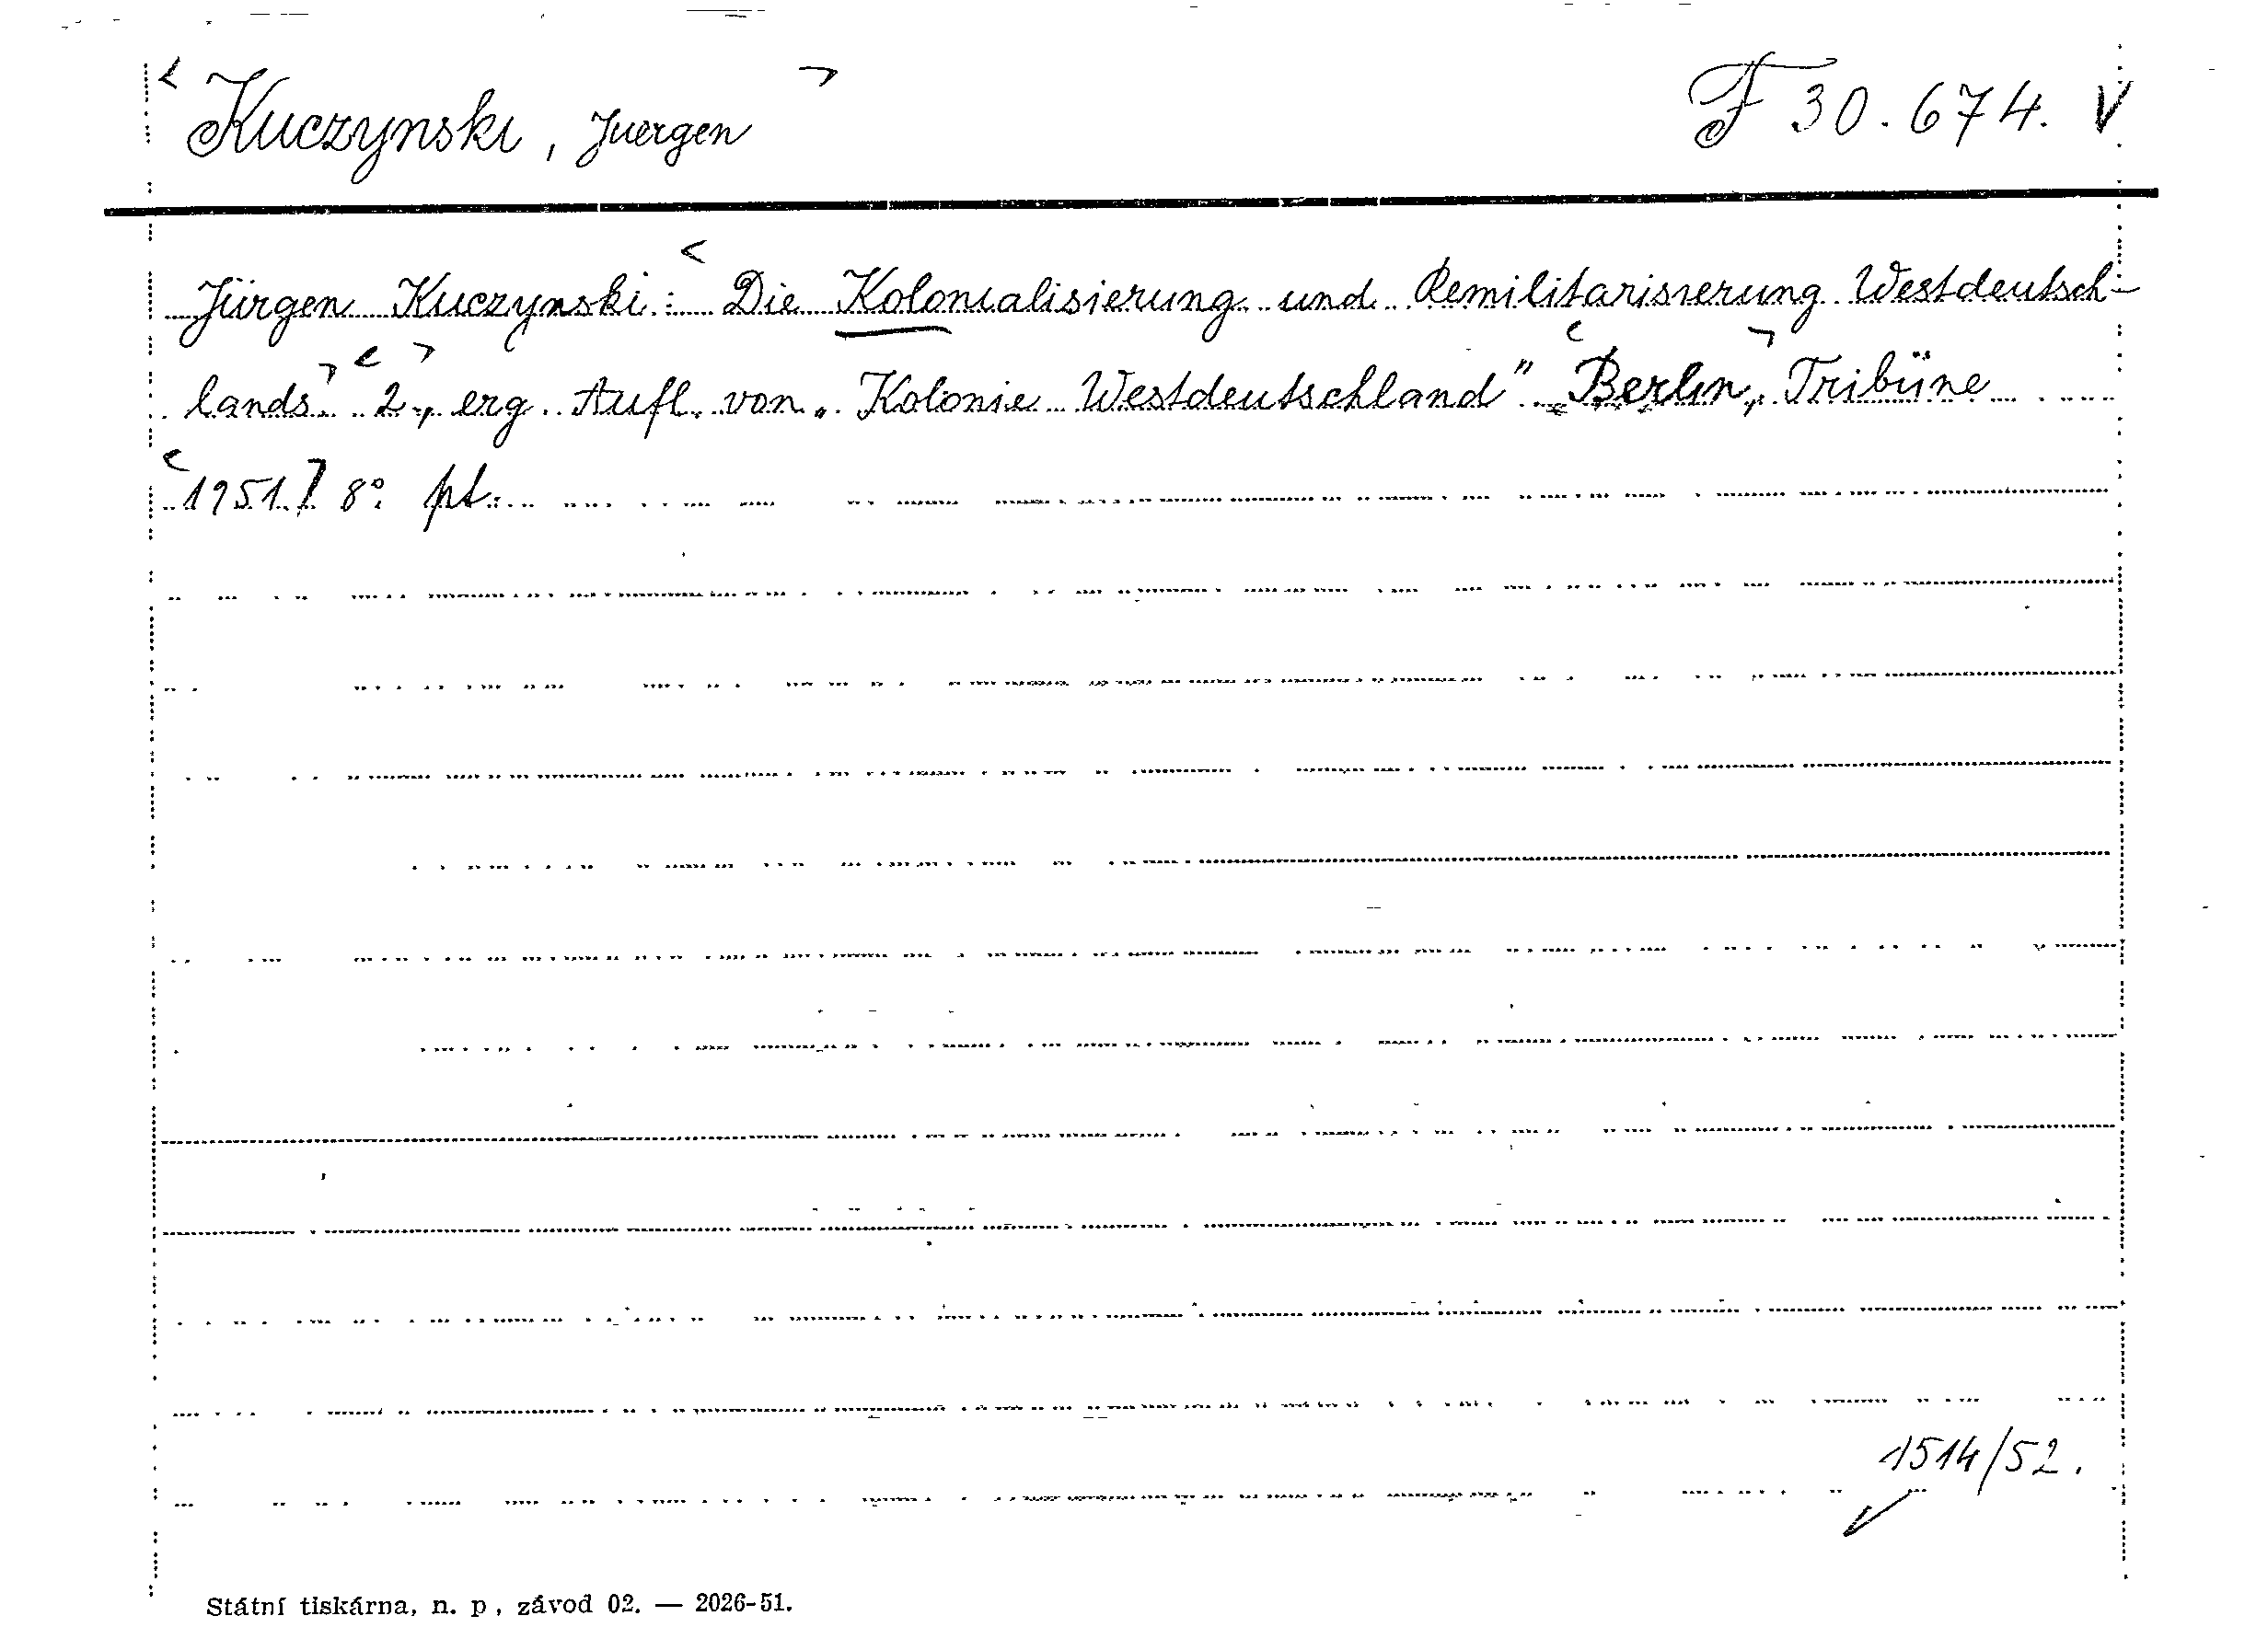 Kuczynski, Juergen
F 30.674. V
Jürgen Kuczynski: Die Kolonialisierung und Remilitarisierung Westdeutsch-
lands 2., erg. Aufl. von „Kolonie Westdeutschland" Berlin, Tribüne
1951. 8° pt.
1514/52.
Státní tiskárna, n. p., závod 02. — 2026-51.